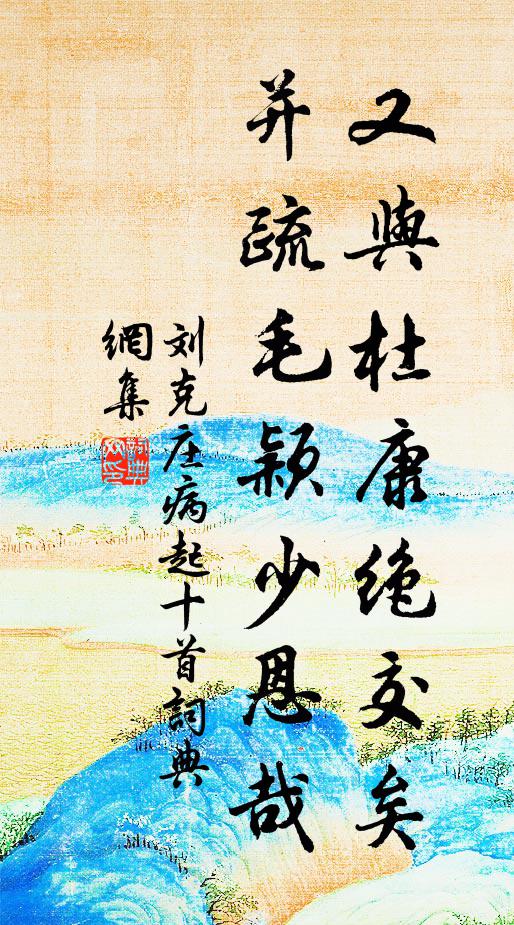 又與杜康绝交矣
并疏毛颖少恩哉
刘克庄病起十首詞典
網集